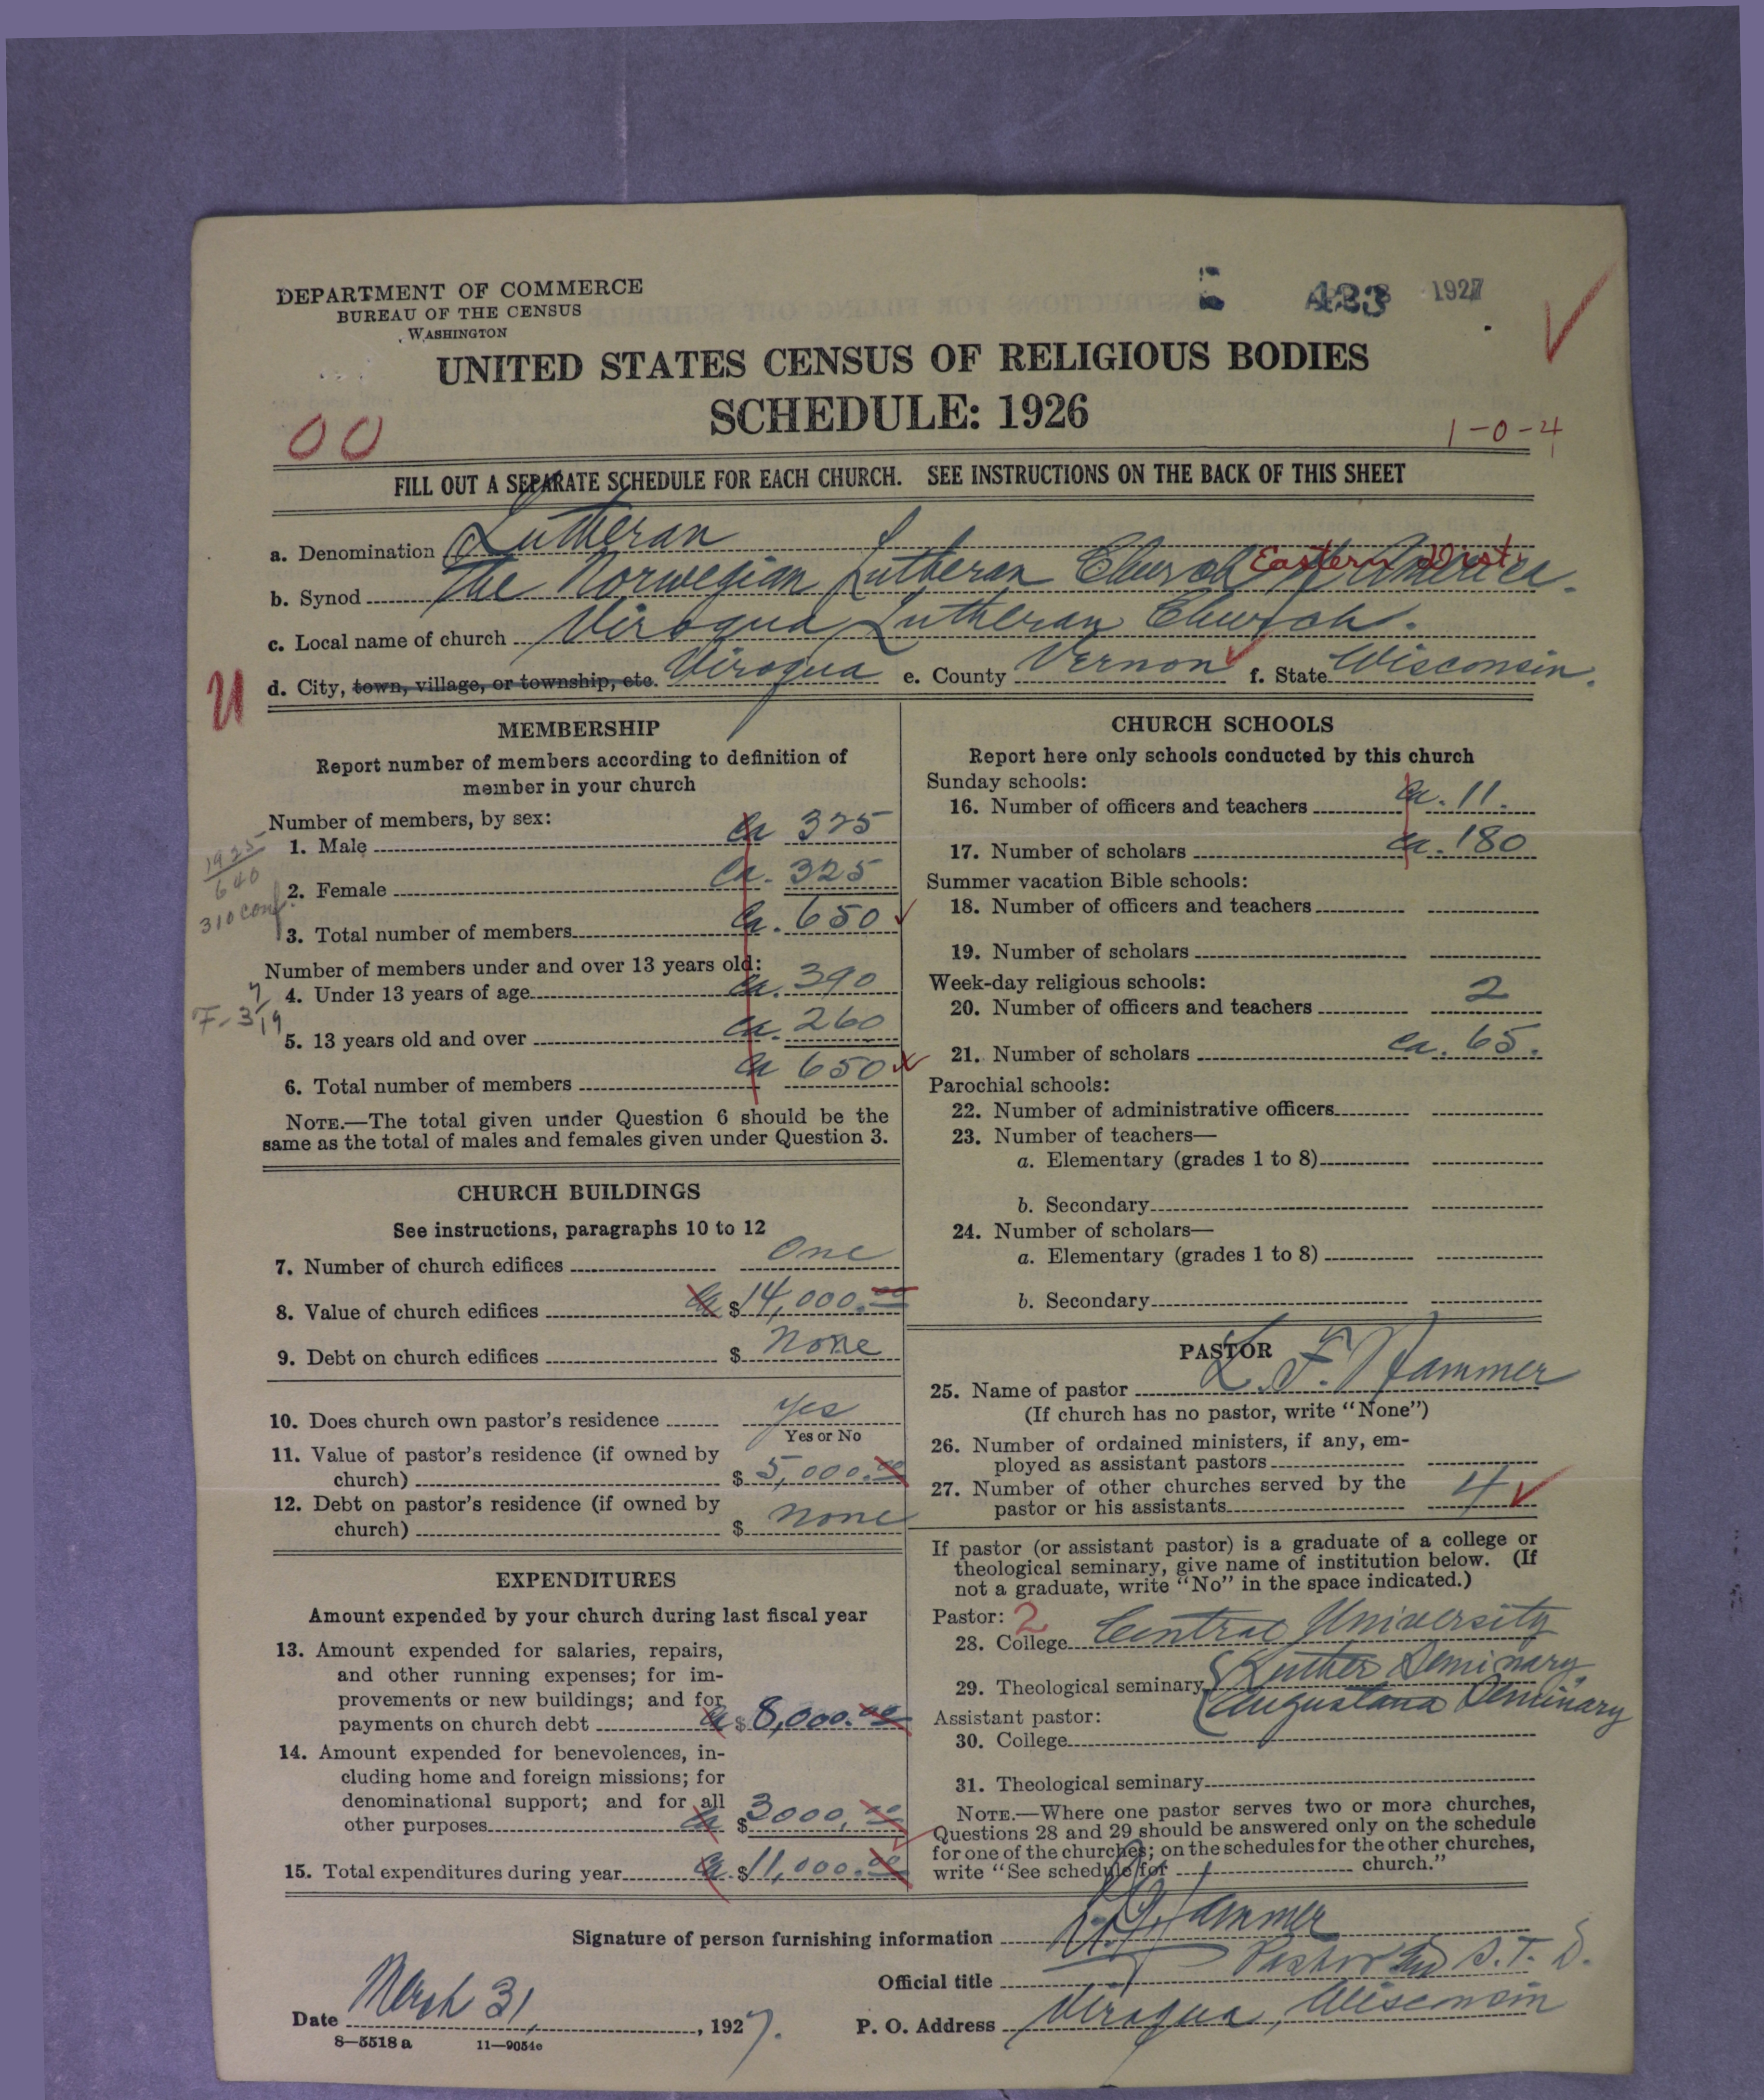 DEPARTMENT OF COMMERCE
BUREAU OF THE CENSUS
WASHINGTON
1927
UNITED STATES CENSUS OF RELIGIOUS BODIES
SCHEDULE: 1926
00
1-0-4
FILL OUT A SEPARATE SCHEDULE FOR EACH CHURCH. SEE INSTRUCTIONS ON THE BACK OF THIS SHEET
a. Denomination Lutheran
Eastern Dist.
b. Synod The Norwegian Lutheran Church of America.
c. Local name of church Viroqua Lutheran Church.
d. City, town, village, or township, etc. Viroqua e. County Vernon f. State Wisconsin.
MEMBERSHIP
Report number of members according to definition of
member in your church
Number of members, by sex:
1. Male Ca 325
2. Female Ca. 325
3. Total number of members Ca. 650
1925
640
310 conf.
Number of members under and over 13 years old:
4. Under 13 years of age Ca. 390
5. 13 years old and over Ca. 260
6. Total number of members Ca 650
NOTE.—The total given under Question 6 should be the
same as the total of males and females given under Question 3.
CHURCH BUILDINGS
See instructions, paragraphs 10 to 12
7. Number of church edifices One
8. Value of church edifices Ca $14,000.00
9. Debt on church edifices $ None
10. Does church own pastor's residence Yes
Yes or No
11. Value of pastor's residence (if owned by
church) $ 5,000.00
12. Debt on pastor's residence (if owned by
church) $ None
EXPENDITURES
Amount expended by your church during last fiscal year
13. Amount expended for salaries, repairs,
and other running expenses; for im-
provements or new buildings; and for
payments on church debt Ca $ 8,000.00
14. Amount expended for benevolences, in-
cluding home and foreign missions; for
denominational support; and for all
other purposes Ca $ 3000.00
15. Total expenditures during year Ca. $ 11,000.00
CHURCH SCHOOLS
Report here only schools conducted by this church
Sunday schools:
16. Number of officers and teachers Ca. 11.
17. Number of scholars Ca. 180
Summer vacation Bible schools:
18. Number of officers and teachers
19. Number of scholars
Week-day religious schools:
20. Number of officers and teachers 2
21. Number of scholars Ca. 65.
Parochial schools:
22. Number of administrative officers
23. Number of teachers—
a. Elementary (grades 1 to 8)
b. Secondary
24. Number of scholars—
a. Elementary (grades 1 to 8)
b. Secondary
PASTOR
25. Name of pastor L. F. Hammer
(If church has no pastor, write "None")
26. Number of ordained ministers, if any, em-
ployed as assistant pastors
27. Number of other churches served by the
pastor or his assistants 4
If pastor (or assistant pastor) is a graduate of a college or
theological seminary, give name of institution below. (If
not a graduate, write "No" in the space indicated.)
Pastor: 2
28. College Central University
29. Theological seminary Luther Seminary
Augustana Seminary
Assistant pastor:
30. College
31. Theological seminary
NOTE.—Where one pastor serves two or more churches,
Questions 28 and 29 should be answered only on the schedule
for one of the churches; on the schedules for the other churches,
write "See schedule for church."
Signature of person furnishing information Hammer
Official title Pastor S. T. D.
Date March 31, 1927.
P. O. Address Viroqua, Wisconsin
8—5518 a 11—9054c